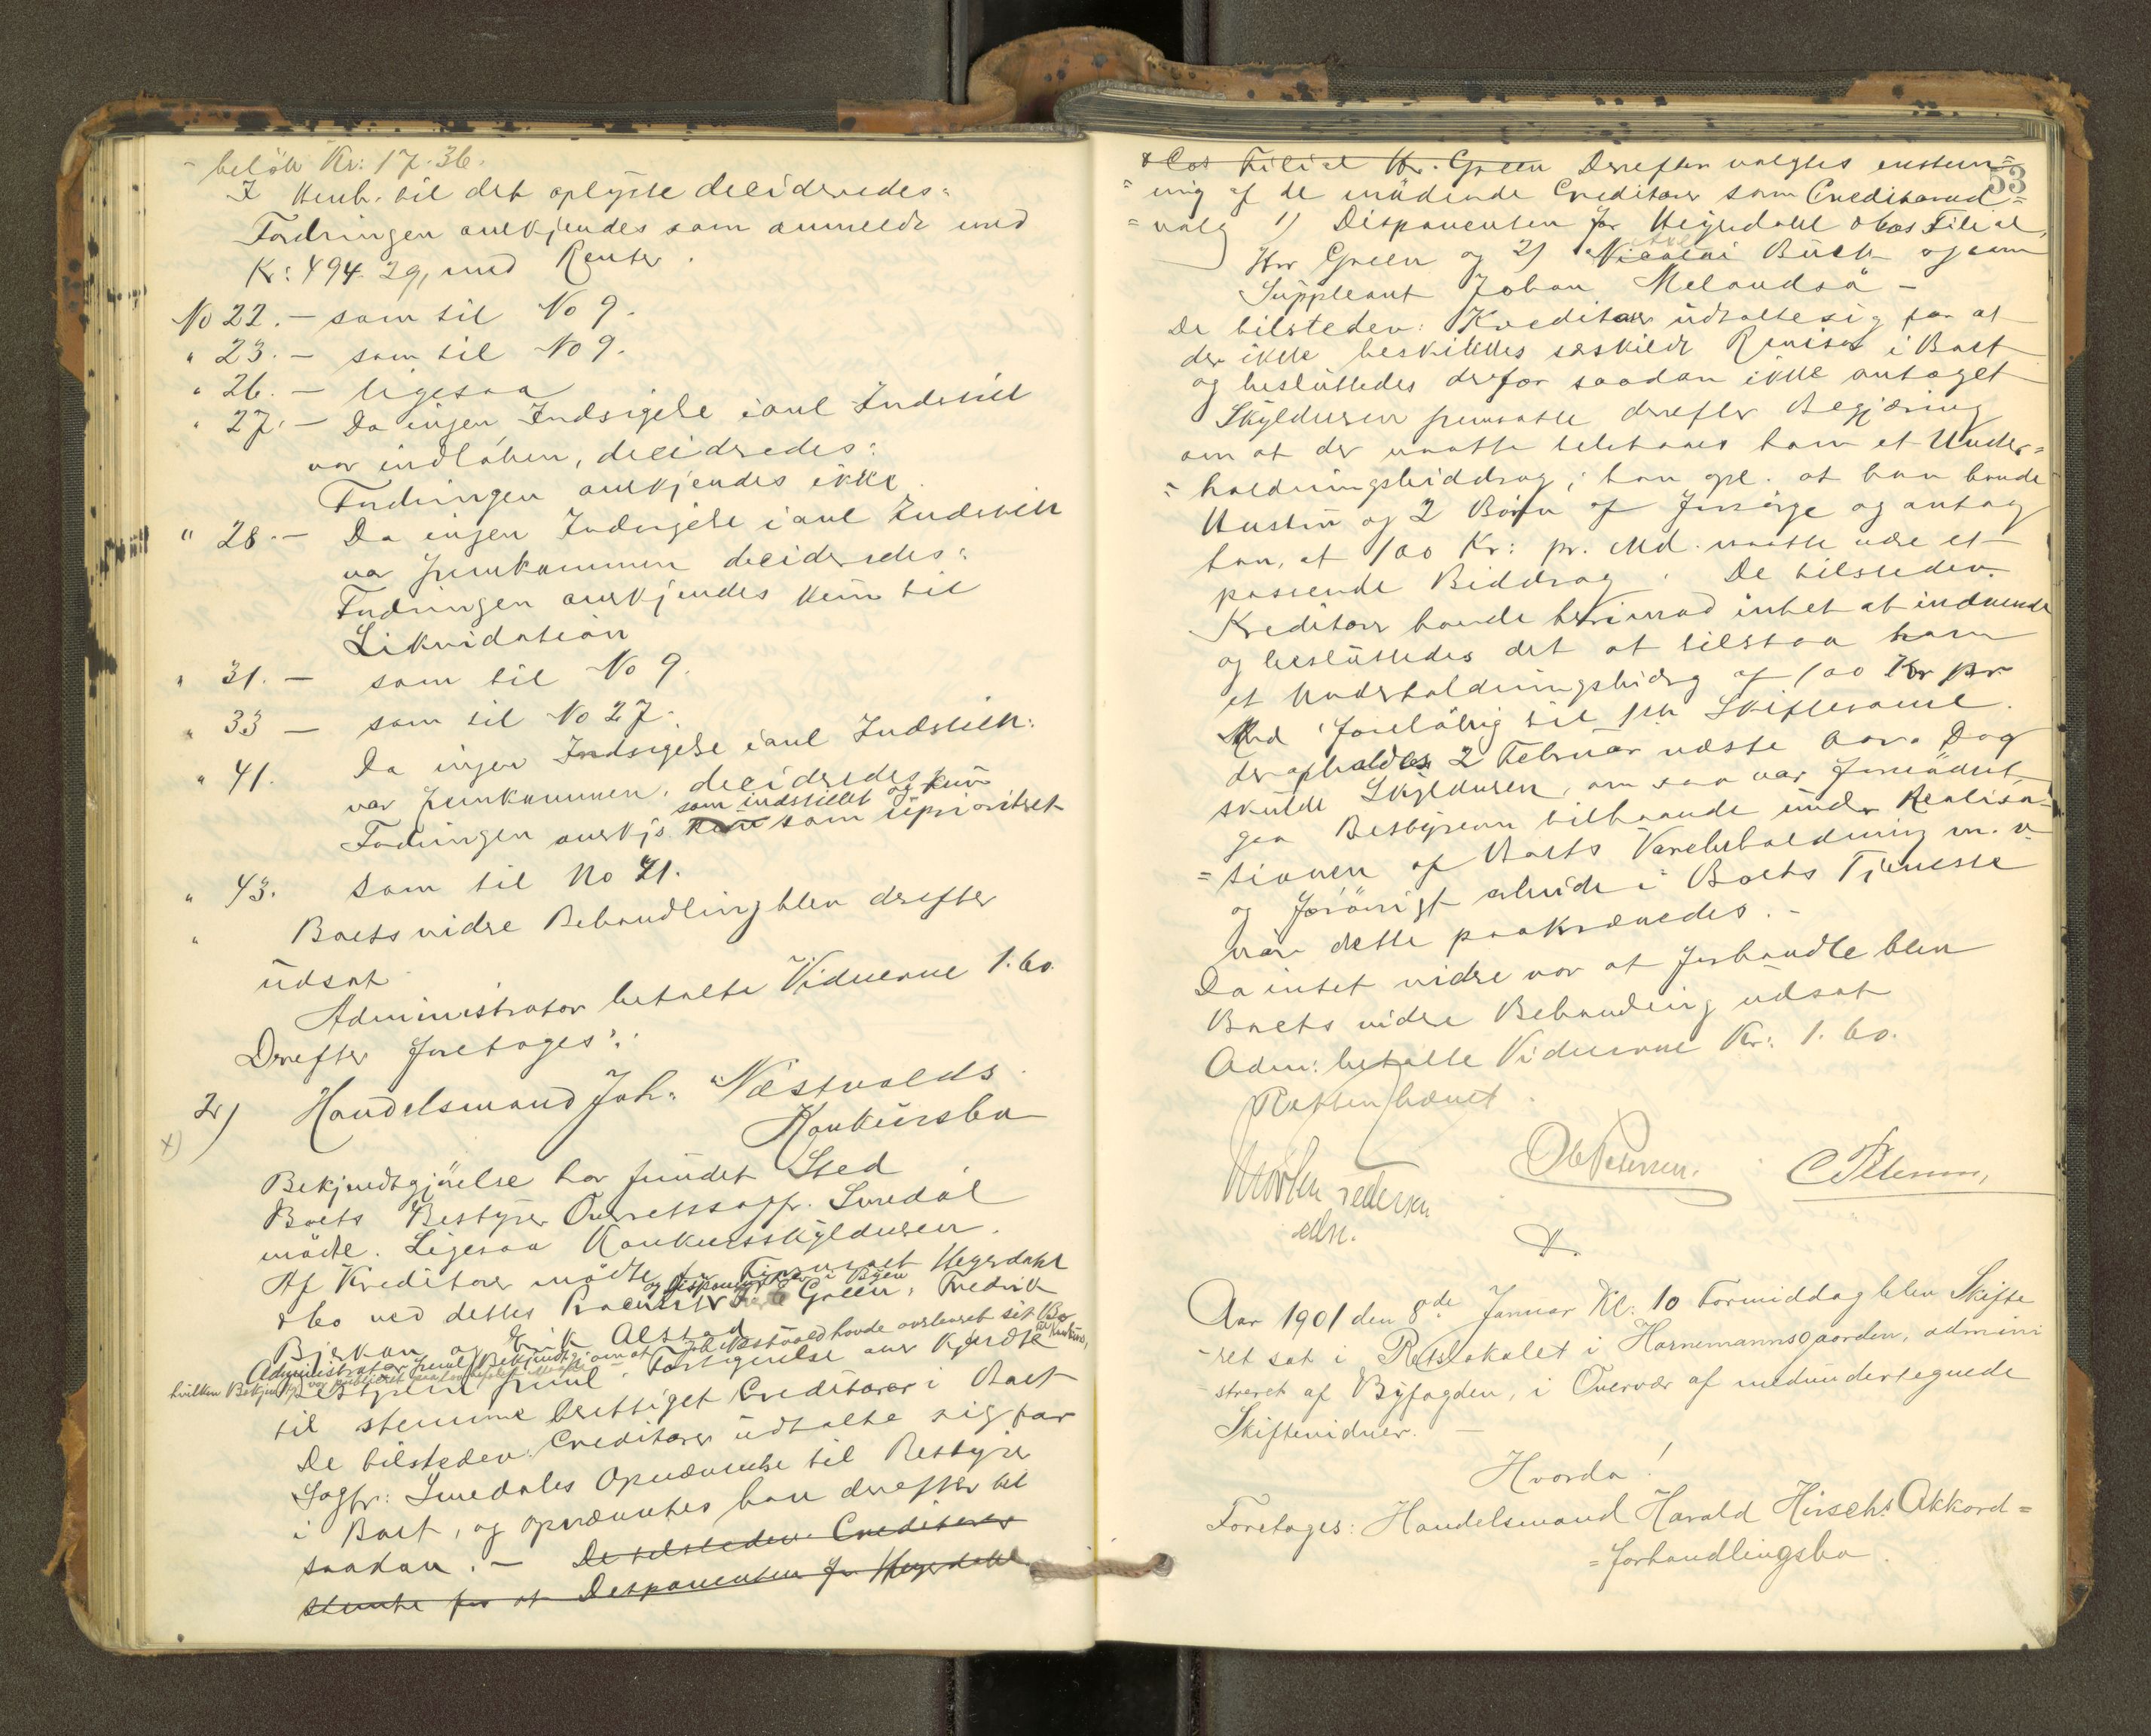 beløb Kr: 17.36.
I Henh. til det oplyste decideredes:
Fordringen anerkjendes som anmeldt med
Kr: 494.29, med Renter.
No 22. — som til No 9.
" 23. — som til No 9.
" 26. — ligesaa
" 27. — Da ingen Indsigelse i anl Indstill
var indløben, decideredes:
Fordringen anerkjendes ikke.
" 28. — Da ingen Indsigelse i anl Indstill
var fremkommen decideredes:
Fordringen anerkjendes kun til
Likvidation
" 31. — som til No 9.
" 33 — som til No 27.
" 41. Da ingen Indsigelse i anl Indstill:
var fremkommen, decideredes
som indstillet og kun
Fordringen anerkjs kun som uprioritret
" 43. som til No 41.
" Boets vidre Behandling blev derefter
udsat
Administrator betalte Vidnerne 1.60.
Derefter foretoges:
2) Handelsmand Joh. Næstvolds
x) Konkursbo
Bekjendtgjörelse har fundet Sted
Boets Bestyrer Overretssagf. Smedal
mödte. Ligesaa Konkursskyldneren.
Af Kreditorer mödte for Firmaet Hegerdahl
og Disponent i Byen
& Co ved dettes Green, Fredrik
Bjerkan og Erik Alstad
Administrator freml. Bekjendtgj. om at Joh Næstvold havde overleveret sit Bo
hvilken Bekjendtgj. var publiceret
Bestyreren freml. Fortegnelse over kjendte
til stemme berettiget Creditorer i Boet
De tilstedev. Creditorer udtalte sig for
Sagfr: Smedals Opnævnelse til Bestyrer
i Boet, og opnævntes han derefter til
saadan. — De tilstedev. Creditorer
stemte for at Disponenten for Hegerdahl
53
& Cos Filial Hr. Green Derefter valgtes enstem=
=mig af de mödende Creditorer som Creditorud=
=valg 1) Disponenten for Hegerdahl & Cos Filial,
Hr Green og 2) Nicolai Buch og som
Suppleant Johan Melandsø —
De tilstedev: Kreditorer udtalte sig for at
der ikke beskikkes særskildt Revisor i Boet
og besluttedes derfor saadan ikke antaget
Skyldneren fremsatte derefter Begjæring
om at der maatte tilstaaes ham et Under=
=holdningsbiddrag; han opl. at han havde
Hustru og 2 Börn at forsörge og antog
han, at 100 Kr: pr. Md. maatte være et
passende Biddrag. De tilstedev.
Kreditorer havde herimod intet at indvende
og besluttedes det at tilstaa ham
et Underholdningsbidrg af 100 Kr pr
Md foreløbig til 1ste Skiftesaml.
der afholdes 2 Februar næste Aar. Dog
skulde Skyldneren, om saa var fornödent,
gaa Bestyreren tilhaande under Realisa=
=tionen af Boets Varebeholdning m. v.
og forövrigt arbeide i Boets Tjeneste
naar dette paakrævedes. —
Da intet vidre var at forhandle blev
Boets vidre Behandling udsat
Adm: betalte Vidnerne Kr: 1.60.
Retten hævet.
Morten Pedersen
edsv.
Ole Petersen.
C Petersen,
Aar 1901 den 8de Januar Kl: 10 Formiddag blev Skifte
-ret sat i Retslokalet i Hornemannsgaarden, admini
-streret af Byfogden, i Overvær af nedundertegnede
Skiftevidner. —
Hvorda!
Foretoges: Handelsmand Harald Hirschs Akkord=
=forhandlingsbo.